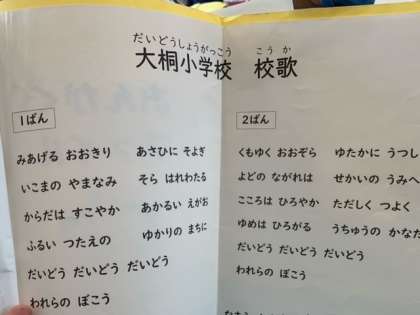 だいどうしょうがっこう こうか
大桐小学校 校歌
1ばん
みあげる おおきり あさひに そよぎ
いこまの やまなみ そら はれわたる
からだは すこやか あかるい えがお
ふるい つたえの ゆかりの まちに
だいどう だいどう だいどう
われらの ぼこう
2ばん
くもゆく おおぞら ゆたかに うつし
よどの ながれは せかいの うみへ
こころは ひろやか ただしく つよく
ゆめは ひろがる うちゅうの かなた
だいどう だいどう だいどう
われらの ぼこう